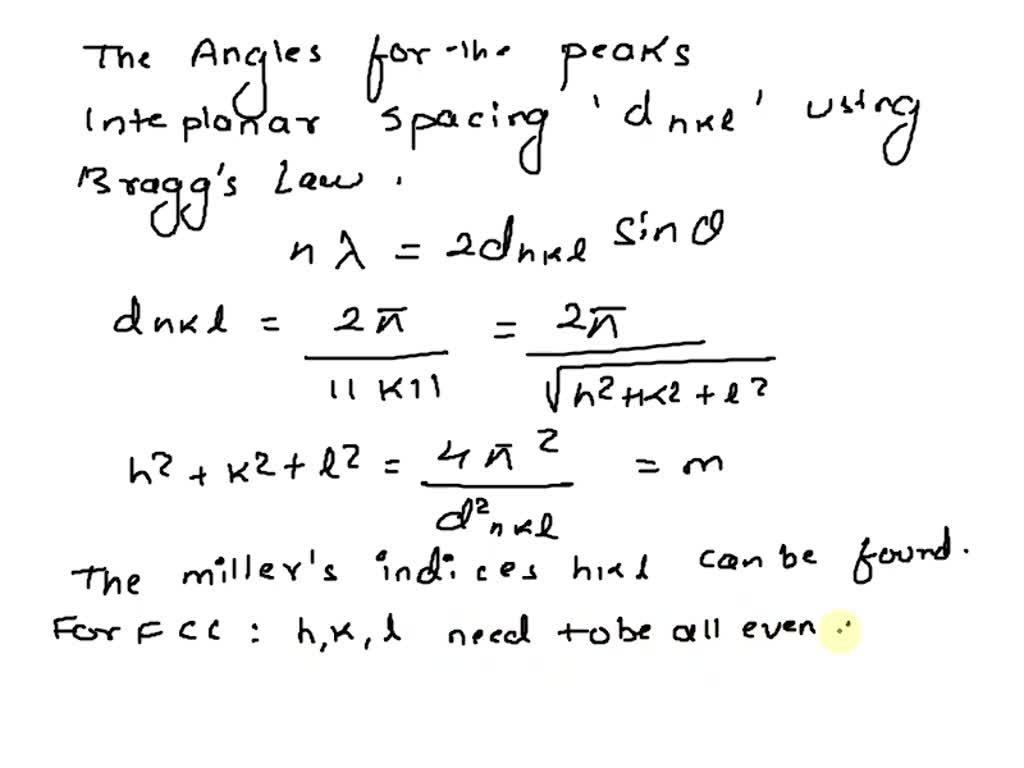 The Angles for the peaks
Inteplanar spacing 'd nkl' using
Bragg's Law.
n λ = 2dnkl sin θ
dnkl = 2π / ||K|| = 2π / √h²+K²+l²
h² + k² + l² = 4π² / d²nkl = m
The miller's indices hkl can be found.
For FCC : h,k,l need to be all even